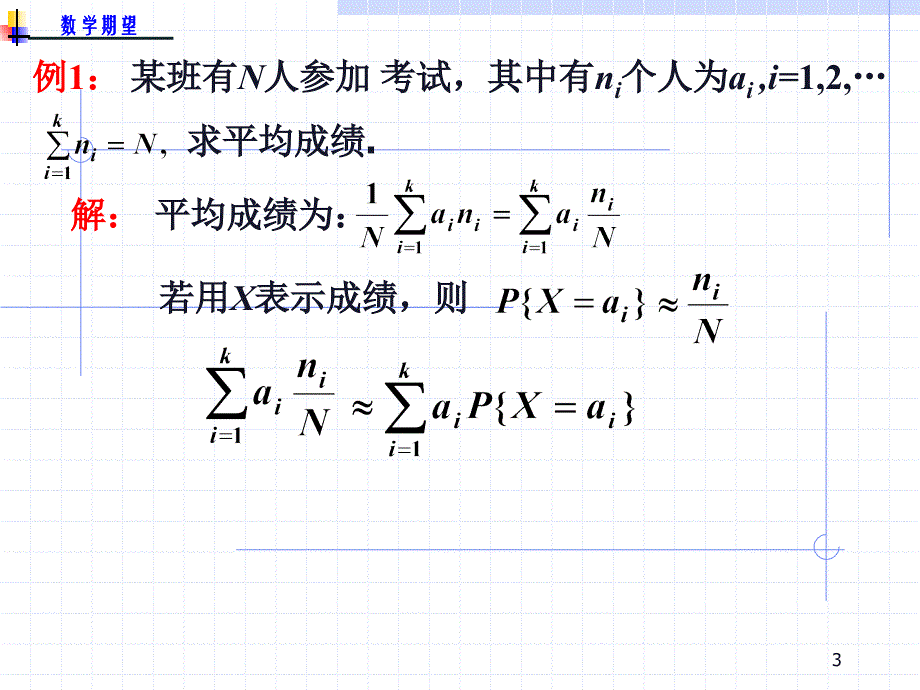 数学期望
例1： 某班有N人参加 考试，其中有nᵢ个人为aᵢ ,i=1,2,⋯
∑_{i=1}^{k} nᵢ = N, 求平均成绩.
解： 平均成绩为： \frac{1}{N} ∑_{i=1}^{k} aᵢ nᵢ = ∑_{i=1}^{k} aᵢ \frac{nᵢ}{N}
若用X表示成绩，则 P{X = aᵢ} ≈ \frac{nᵢ}{N}
∑_{i=1}^{k} aᵢ \frac{nᵢ}{N} ≈ ∑_{i=1}^{k} aᵢ P{X = aᵢ}
3